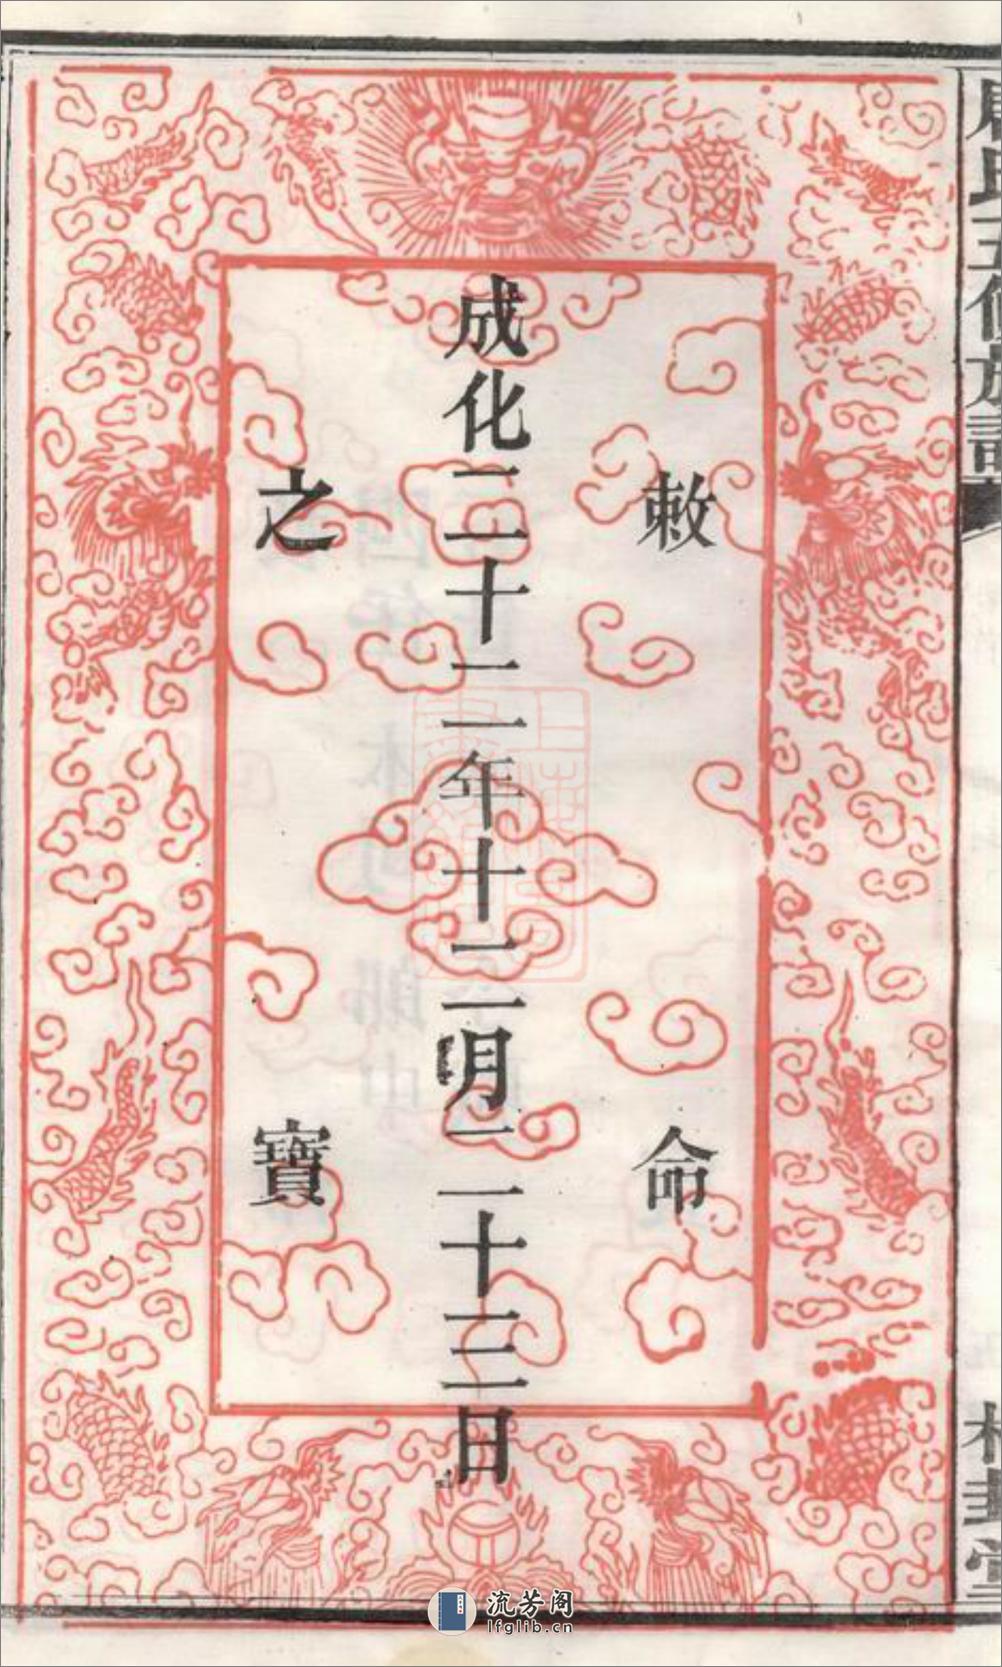 氏五修族譜
敕命
成化二十二年十二月二十三日
之寶
流芳阁
lfglib.cn